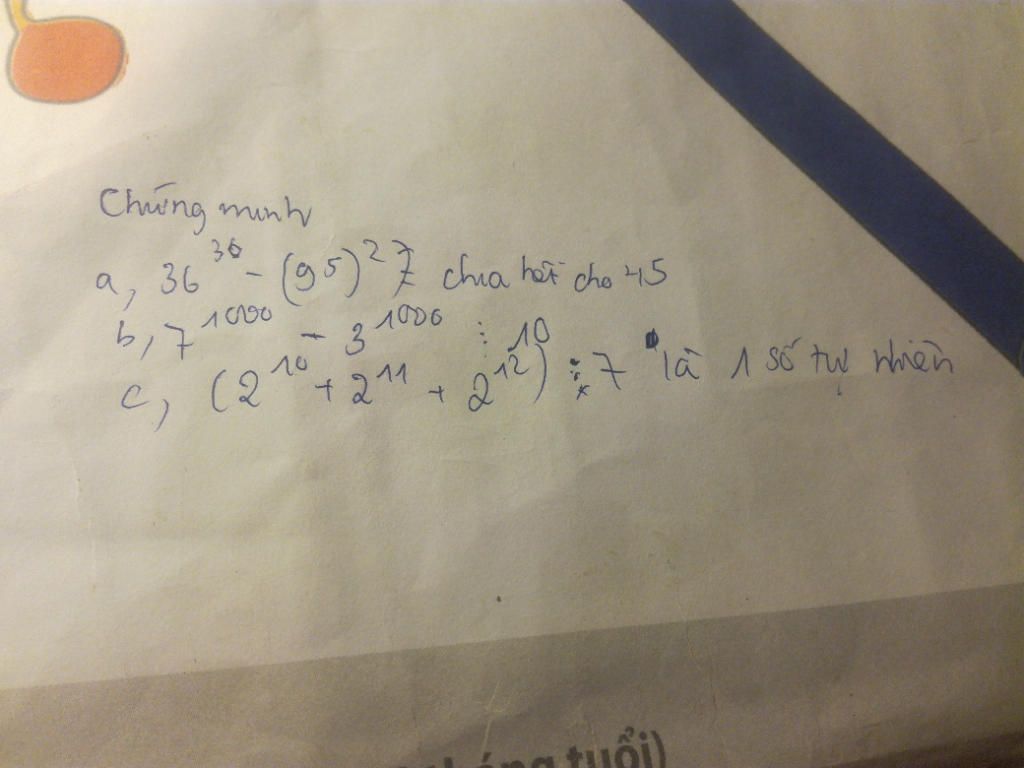 Chứng minh
a, 36³⁶ - (95)²7 chia hết cho 45
b, 7¹⁰⁰⁰ - 3¹⁰⁰⁰ ⋮ 10
c, (2¹⁰ + 2¹¹ + 2¹²) : 7 là 1 số tự nhiên
tuổi)